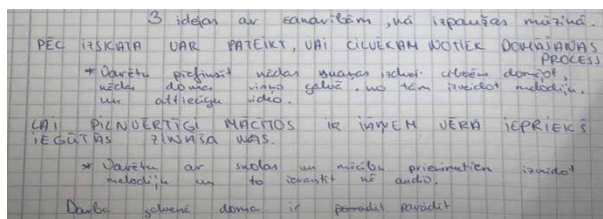 3 idejas ar sanavibām, kā izpaužas mūzikā.
PĒC IZSKATA VAR PATEIKT, VAI CILVĒKAM NOTIEK DOMĀŠANAS
PROCESS
* Varētu piefiksēt kādas skaņas izdvei cilvēks domājot,
kādas doma viņa galvā, no tām izveidot melodiju,
un attiecīgu video.
LAI PILNVĒRTĪGI MĀCĪTOS IR JĀŅEM VĒRĀ IEPRIEKŠ
IEGŪTĀS ZINĀŠANAS.
* Varētu ar skolas un mācību priekšmetiem izveidot
melodiju un to ierakstīt kā audio.
Darba galvenā doma ir parādīt